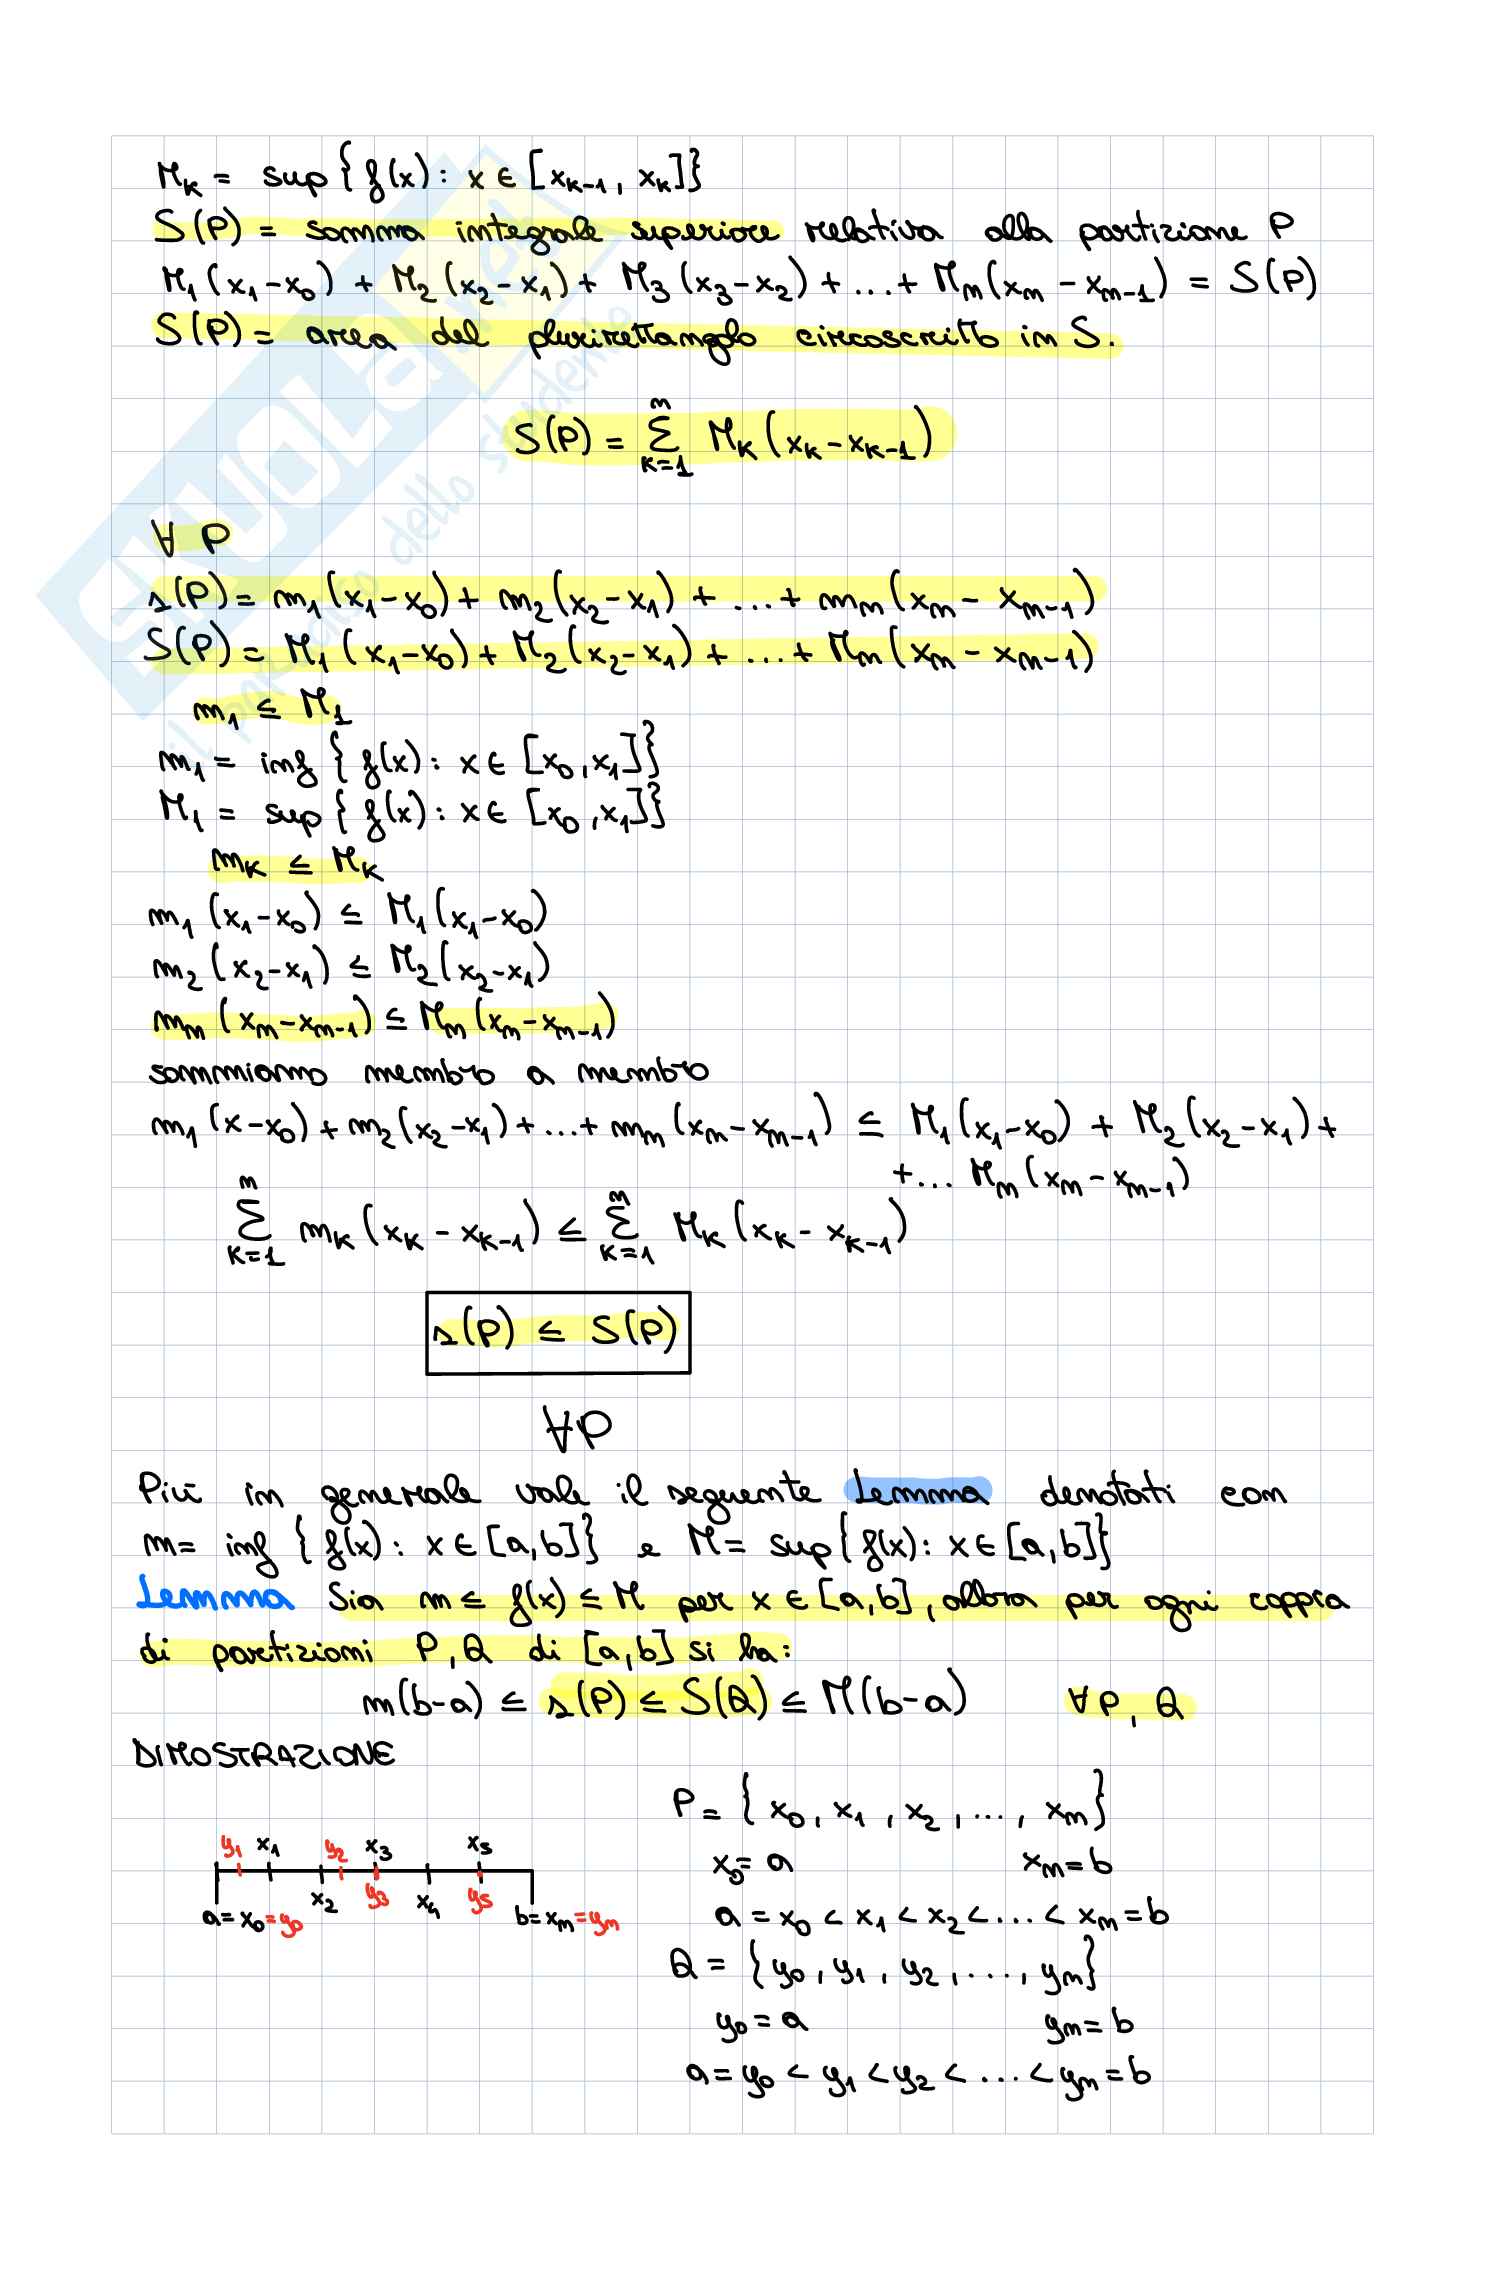 M_k = sup{f(x) : x ∈ [x_{k-1}, x_k]}
S(P) = somma integrale superiore relativa alla partizione P
M_1(x_1-x_0) + M_2(x_2-x_1) + M_3(x_3-x_2) + ... + M_n(x_n - x_{n-1}) = S(P)
S(P) = area del plurirettangolo circoscritto in S.
S(P) = ∑_{k=1}^{n} M_k(x_k - x_{k-1})
∀ P
s(P) = m_1(x_1-x_0) + m_2(x_2-x_1) + ... + m_n(x_n - x_{n-1})
S(P) = M_1(x_1-x_0) + M_2(x_2-x_1) + ... + M_n(x_n - x_{n-1})
m_1 ≤ M_1
m_1 = inf{f(x) : x ∈ [x_0, x_1]}
M_1 = sup{f(x) : x ∈ [x_0, x_1]}
m_k ≤ M_k
m_1(x_1-x_0) ≤ M_1(x_1-x_0)
m_2(x_2-x_1) ≤ M_2(x_2-x_1)
m_n(x_n-x_{n-1}) ≤ M_n(x_n-x_{n-1})
sommiamo membro a membro
m_1(x-x_0) + m_2(x_2-x_1) + ... + m_n(x_n-x_{n-1}) ≤ M_1(x_1-x_0) + M_2(x_2-x_1) +
+ ... M_n(x_n - x_{n-1})
∑_{k=1}^{n} m_k(x_k - x_{k-1}) ≤ ∑_{k=1}^{n} M_k(x_k - x_{k-1})
s(P) ≤ S(P)
∀P
Più in generale vale il seguente Lemma denotati con
m = inf{f(x) : x ∈ [a,b]} e M = sup{f(x) : x ∈ [a,b]}
Lemma Sia m ≤ f(x) ≤ M per x ∈ [a,b], allora per ogni coppia
di partizioni P, Q di [a,b] si ha:
m(b-a) ≤ s(P) ≤ S(Q) ≤ M(b-a) ∀ P, Q
DIMOSTRAZIONE
P = {x_0, x_1, x_2, ..., x_n}
y_1 x_1 y_2 x_3 x_5
x_0 = a x_n = b
x_2 y_3 x_4 y_5
a = x_0 = y_0 b = x_n = y_m
a = x_0 < x_1 < x_2 < ... < x_n = b
Q = {y_0, y_1, y_2, ..., y_m}
y_0 = a y_m = b
a = y_0 < y_1 < y_2 < ... < y_m = b
SKUOLA.net
il portale dello studente